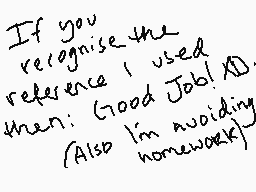 If you
recognise the
reference I used
then: Good Job! XD.
(Also I'm avoiding
homework)